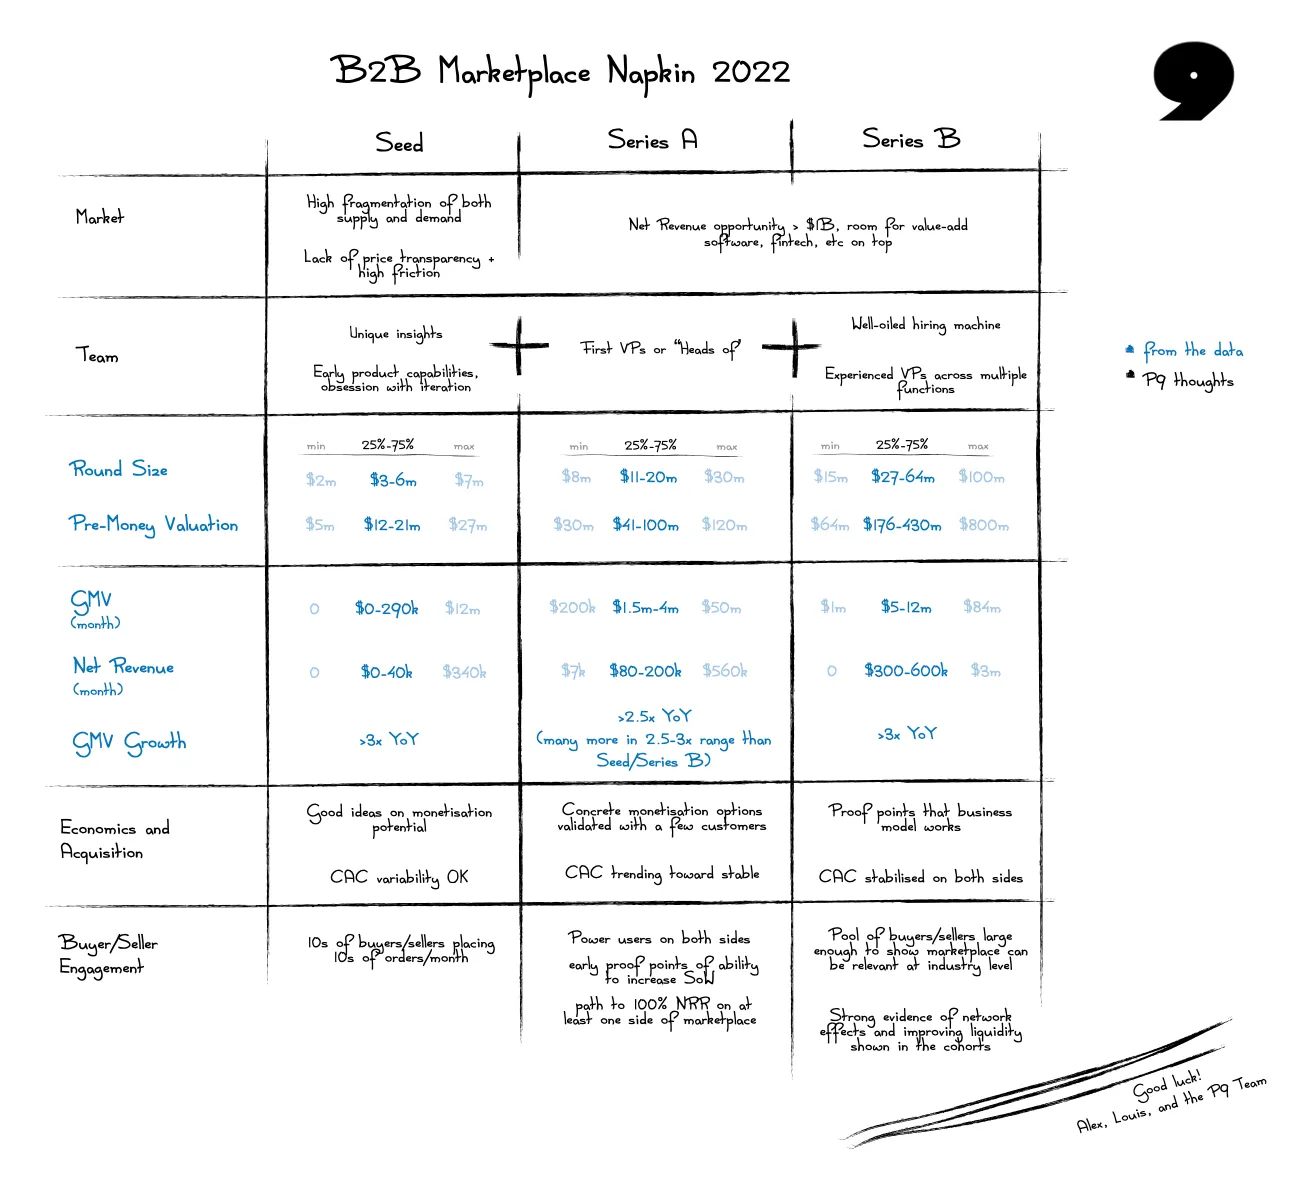 B2B Marketplace Napkin 2022
9
Seed
Series A
Series B
Market
High fragmentation of both
supply and demand
Lack of price transparency +
high friction
Net Revenue opportunity > $1B, room for value-add
software, fintech, etc on top
Team
Unique insights
Early product capabilities,
obsession with iteration
First VPs or “Heads of”
Well-oiled hiring machine
Experienced VPs across multiple
functions
from the data
P9 thoughts
min 25%-75% max
min 25%-75% max
min 25%-75% max
Round Size
$2m $3-6m $7m
$8m $11-20m $30m
$15m $27-64m $100m
Pre-Money Valuation
$5m $12-21m $27m
$30m $41-100m $120m
$64m $176-430m $800m
GMV
(month)
0 $0-290k $12m
$200k $1.5m-4m $50m
$1m $5-12m $84m
Net Revenue
(month)
0 $0-40k $340k
$7k $80-200k $560k
0 $300-600k $3m
GMV Growth
>3x YoY
>2.5x YoY
(many more in 2.5-3x range than
Seed/Series B)
>3x YoY
Economics and
Acquisition
Good ideas on monetisation
potential
CAC variability OK
Concrete monetisation options
validated with a few customers
CAC trending toward stable
Proof points that business
model works
CAC stabilised on both sides
Buyer/Seller
Engagement
10s of buyers/sellers placing
10s of orders/month
Power users on both sides
early proof points of ability
to increase SoW
path to 100% NRR on at
least one side of marketplace
Pool of buyers/sellers large
enough to show marketplace can
be relevant at industry level
Strong evidence of network
effects and improving liquidity
shown in the cohorts
Good luck!
Alex, Louis, and the P9 Team